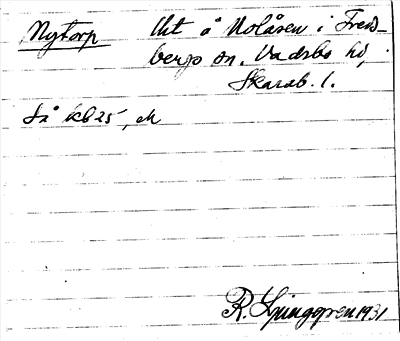 Nytorp Lht å Nolåsen i Freds-
bergs sn. Vadsbo hd,
Skarab. l.
Så kb 25, M
R. Ljunggren 1931